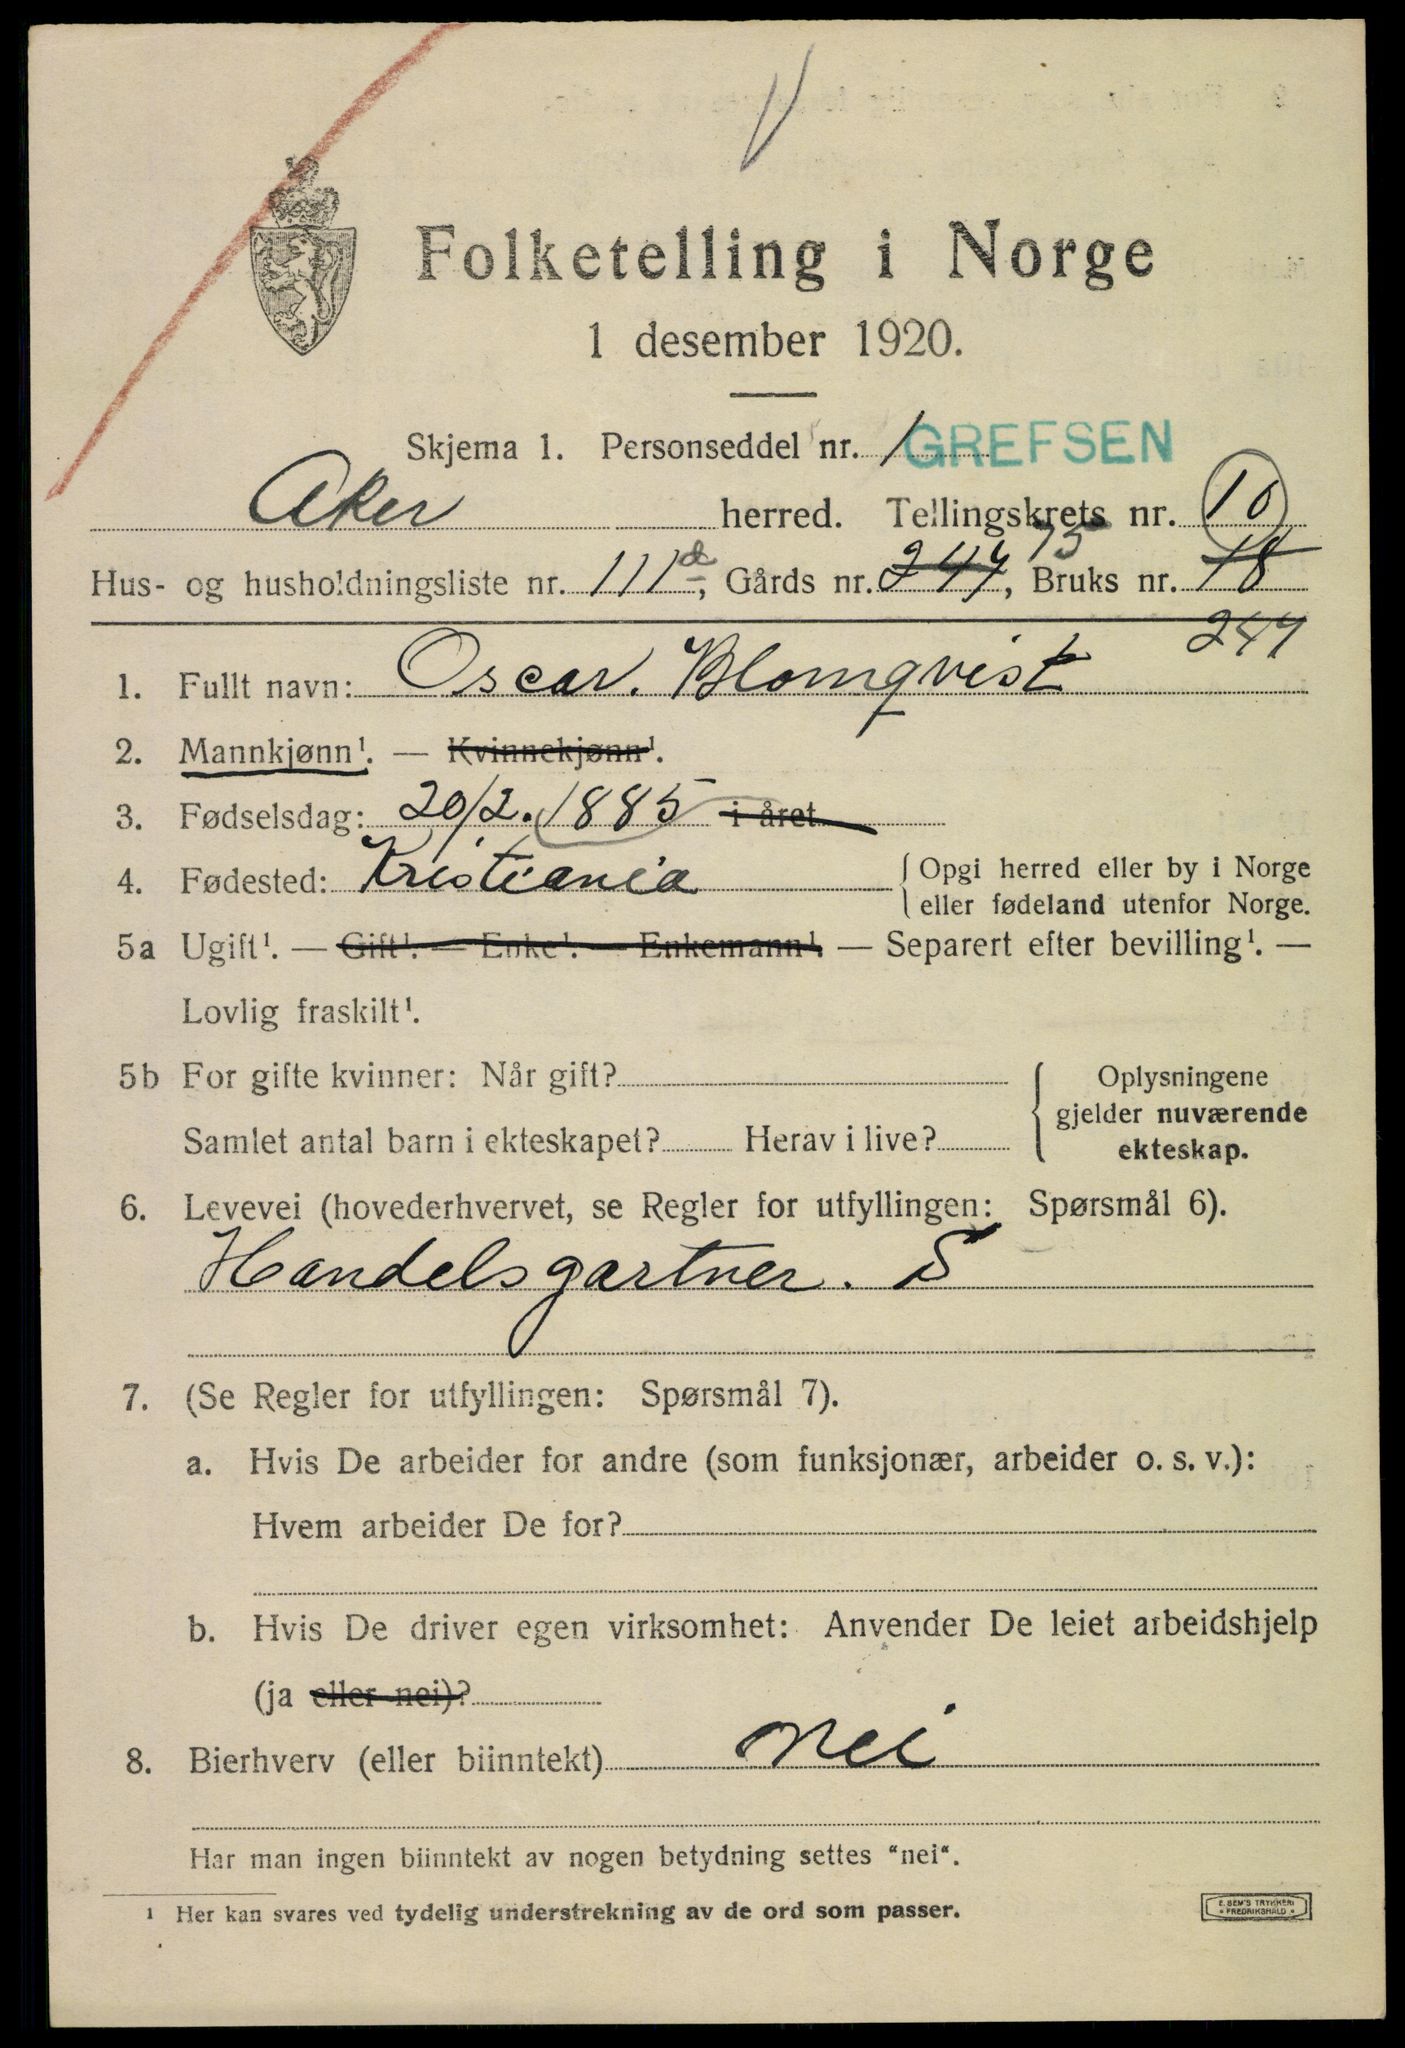 Folketelling i Norge
1 desember 1920.
Skjema 1. Personseddel nr. 1 GREFSEN
Aker herred. Tellingskrets nr. 10
75
Hus- og husholdningsliste nr. 111 d, Gårds nr. 244, Bruks nr. 18
244
1. Fullt navn: Oscar. Blomqvist
2. Mannkjønn¹. — Kvinnekjønn¹.
3. Fødselsdag: 20/2. 1885 i året
4. Fødested: Kristiania { Opgi herred eller by i Norge
eller fødeland utenfor Norge.
5a Ugift¹. — Gift¹. — Enke¹. — Enkemann¹. — Separert efter bevilling¹. —
Lovlig fraskilt¹.
5b For gifte kvinner: Når gift? { Oplysningene
gjelder nuværende
Samlet antal barn i ekteskapet? Herav i live? ekteskap.
6. Levevei (hovederhvervet, se Regler for utfyllingen: Spørsmål 6).
Handelsgartner. S
7. (Se Regler for utfyllingen: Spørsmål 7).
a. Hvis De arbeider for andre (som funksjonær, arbeider o. s. v.):
Hvem arbeider De for?
b. Hvis De driver egen virksomhet: Anvender De leiet arbeidshjelp
(ja eller nei)?
8. Bierhverv (eller biinntekt) nei
Har man ingen biinntekt av nogen betydning settes "nei".
¹ Her kan svares ved tydelig understrekning av de ord som passer.
E. SEM'S TRYKKERI
FREDRIKSHALD